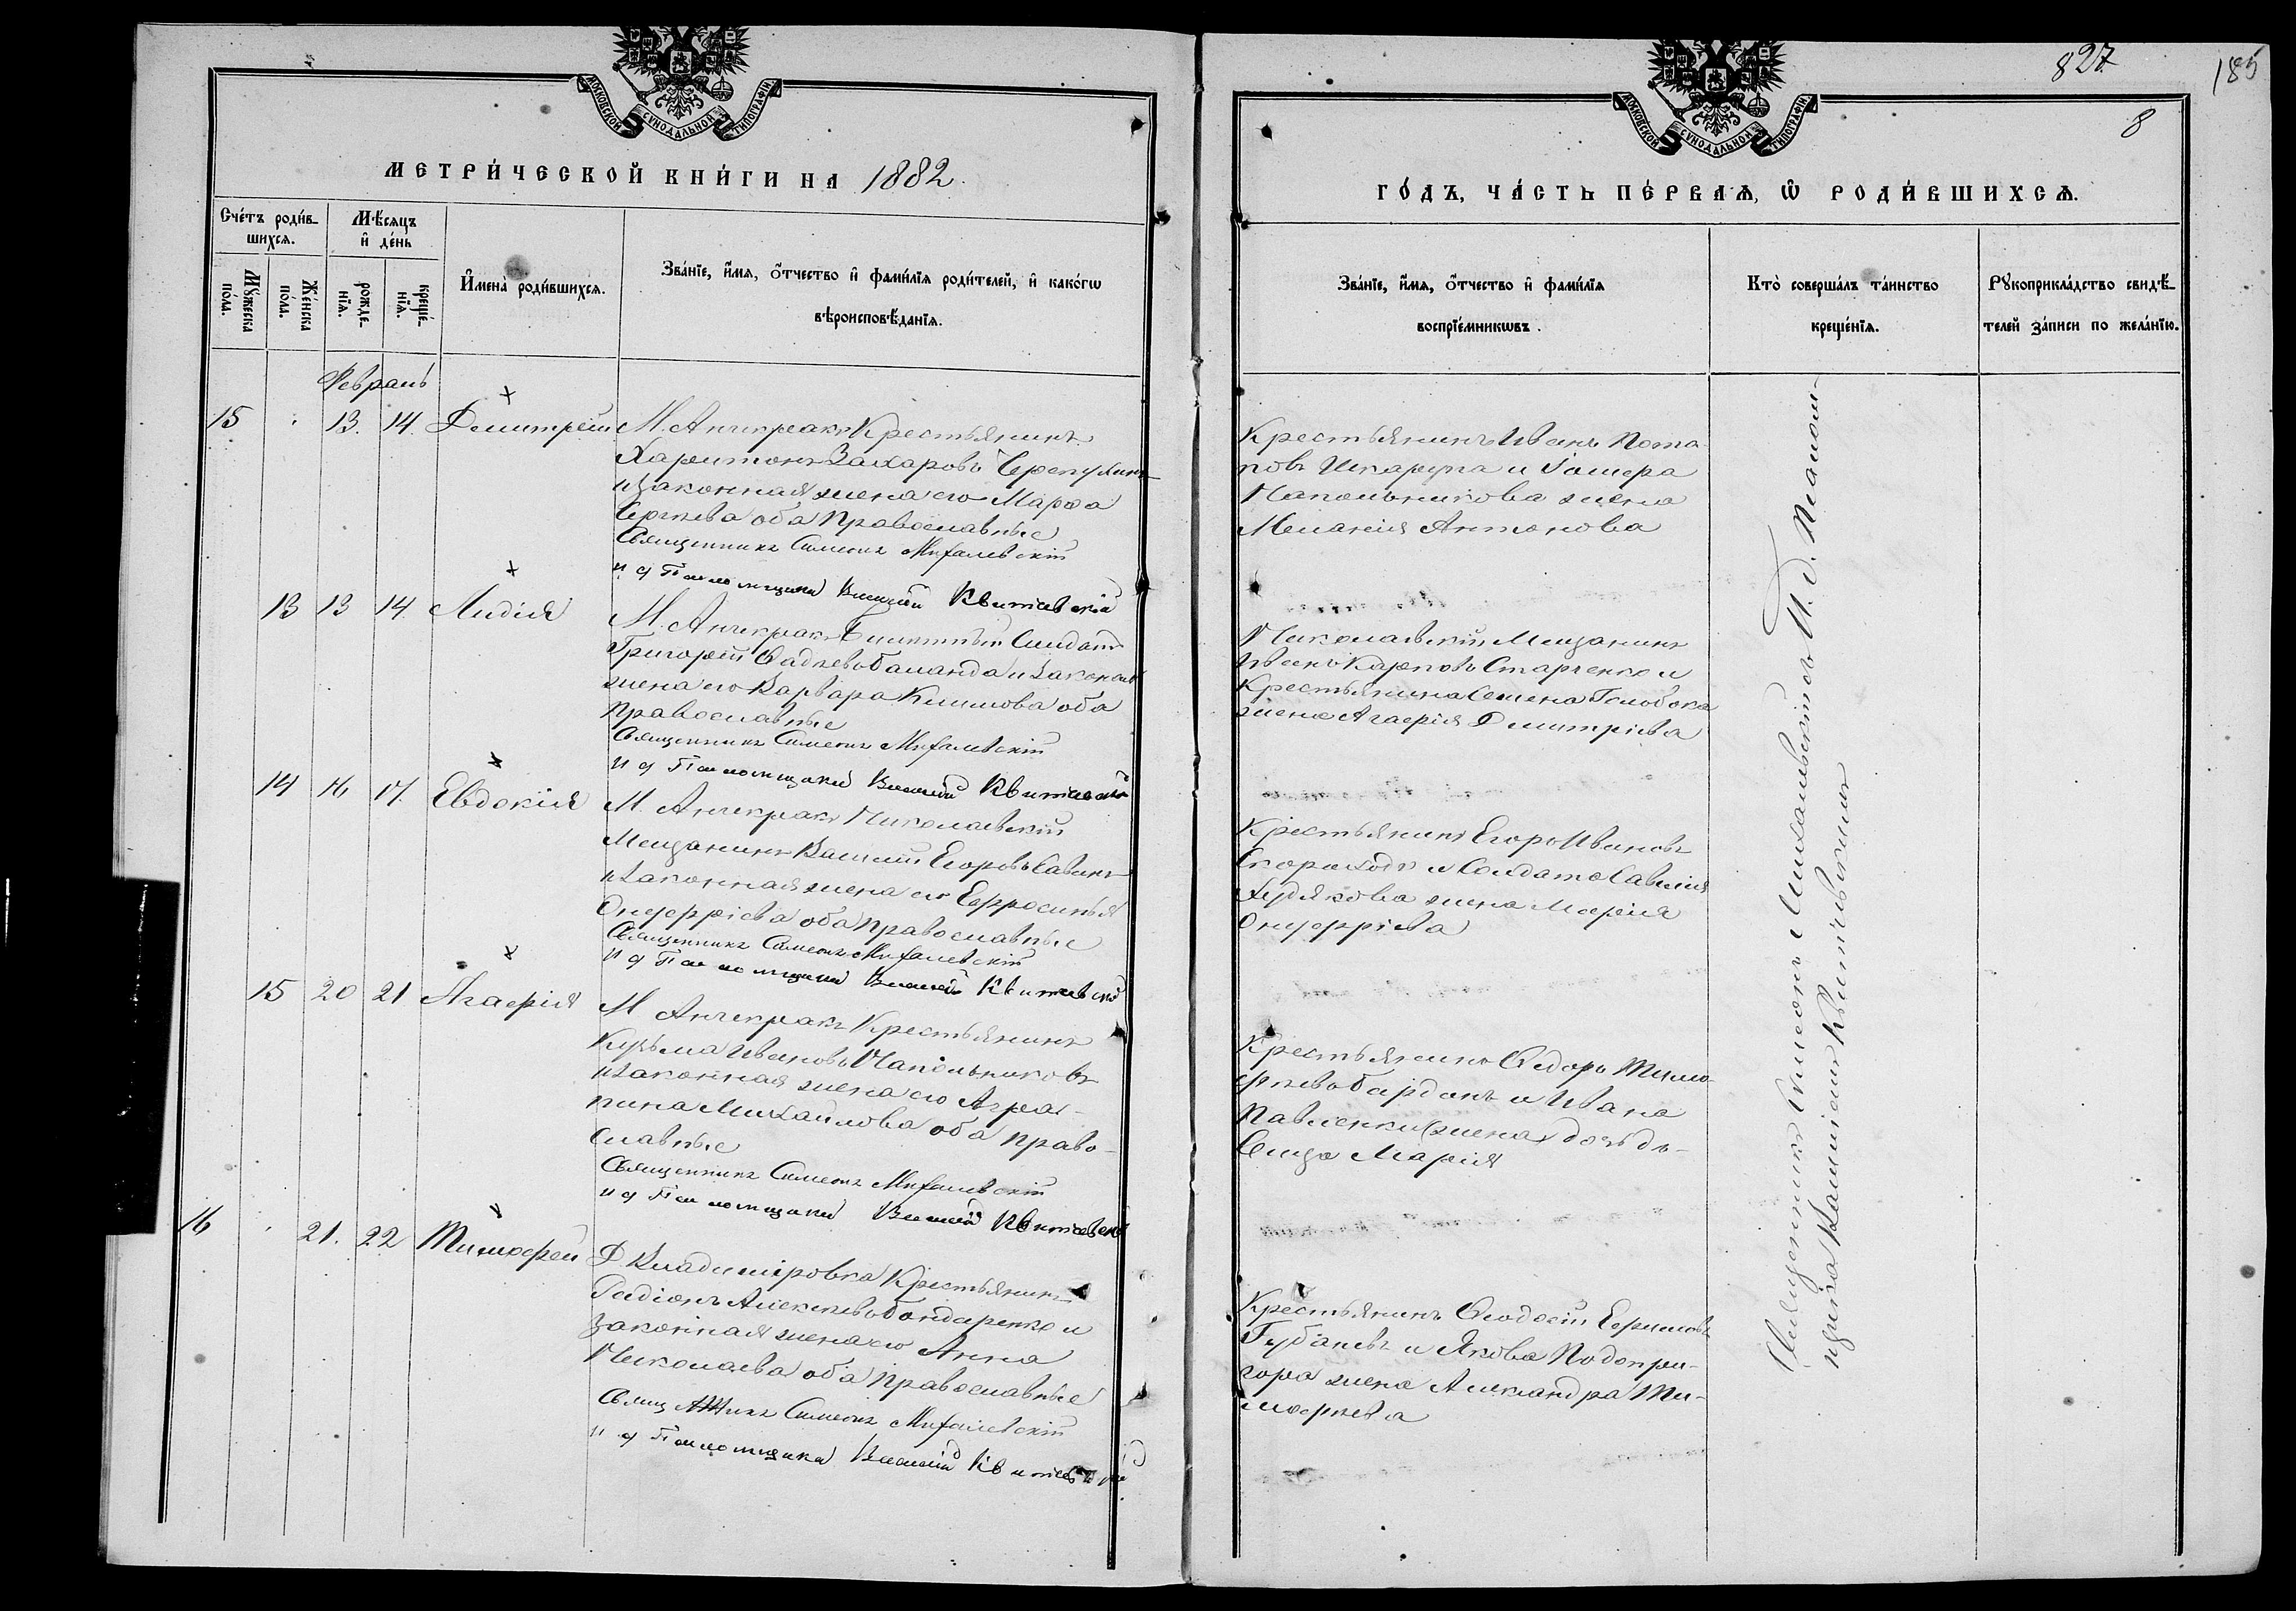 МОСКОВСКОЙ СѴНОДАЛЬНОЙ ТИПОГРАФІИ.
МЕТРИ́ЧЕСКОЙ КНИ́ГИ НА 1882.
Сче́тъ роди́в-
шихсѧ.
Мѣ́сяцъ
и҆ де́нь
Мꙋ́жеска
по́ла.
Же́нска
по́ла.
рожде-
нїѧ.
креще́-
нїѧ.
И҆мена̀ роди́вшихсѧ.
Зва́нїе, и҆́мѧ, о҆́тчество и҆ фами́лїѧ роди́телей, и҆ како́гѡ
вѣроисповѣ́данїѧ.
Февраль
15 13. 14. Димитрій
М. Анчекракъ Крестьянинъ
Харитонъ Захаровъ
и законная жена его Марѳа
Сергѣева оба православные
Священникъ Симеонъ Михалевскій
и д Псаломщика Василій Квитковскій
13 13 14. Лидія
М. Анчекракъ Билетный Солдатъ
Григорій Фадѣевъ Баланда и законная
жена его Варвара Климова оба
православные
Священникъ Симеонъ Михалевскій
и д Псаломщика Василій Квитковскій
14 16 17. Евдокія
М. Анчекракъ Николаевскій
Мещанинъ Василій Егоровъ Савинъ
и законная жена его Ефросинья
Онуфріева оба православные
Священникъ Симеонъ Михалевскій
и д Псаломщика Василій Квитковскій
15 20 21 Агафія
М Анчекракъ Крестьянинъ
Кузьма Ивановъ Напольниковъ
и законная жена его Агра-
пина Михайлова оба право-
славные
Священникъ Симеонъ Михалевскій
и д Псаломщика Василій Квитковскій
16 21. 22 Тимофей
Д Владиміровка Крестьянинъ
Радіонъ Алексѣевъ Бондаренко и
законная жена его Анна
Николаева оба православные
Симеонъ Михалевскій
и д Псаломщика Василій Квитковскій
827
185
8
МОСКОВСКОЙ СѴНОДАЛЬНОЙ ТИПОГРАФІИ.
ГО́ДЪ, ЧА́СТЬ ПЕ́РВАѦ, Ѡ҆ РОДИ́ВШИХСѦ.
Зва́нїе, и҆́мѧ, о҆́тчество и҆ фами́лїѧ
воспрїе́мникѡвъ.
Кто̀ соверша́лъ та́инство
креще́нїѧ.
Рꙋкоприкла́дство свидѣ́-
телей за́писи по жела́нїю.
Крестьянинъ Иванъ Пота-
повъ Шкарупа и
Напольникова жена
Меланія Антонова
Николаевскій Мещанинъ
Иванъ Карповъ Старченко и
Крестьянина Семена Голобока
жена Агафія Димитріева
Крестьянинъ Егоръ Ивановъ
Скороходъ и Солдата Савелія
Худякова жена Марія
Онуфріева
Крестьянинъ Ѳедоръ Тимо-
фѣевъ Бардакъ и Ивана
Павленки (жена) дочь дѣ-
вица Марія
Крестьянинъ Ѳеодосій Ефимовъ
Губаневъ и Якова Подопри-
гора жена Александра Ти-
мофѣева
Священникъ Симеонъ Михалевскій съ И. д. Псалом-
щика Василіемъ Квитковскимъ